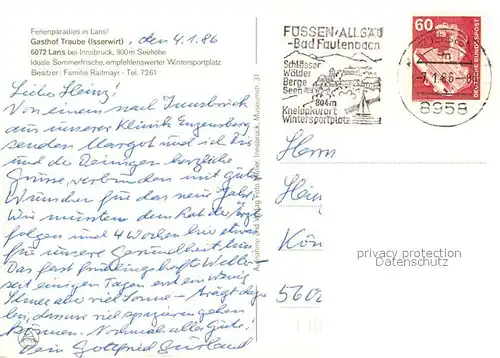 Ferienparadies in Lans!
Gasthof Traube (Isserwirt)
6072 Lans bei Innsbruck, 900 m Seehöhe
Ideale Sommerfrische, empfehlenswerter Wintersportplatz
Besitzer: Familie Raitmayr - Tel. 7261
, den 4.1.86
Liebe Heinz!
Von einem nach Innsbruck
aus unserer Klinik Enzensberg
senden Margot und ich Dir
und die Deinigen herzliche
Grüsse, verbunden mit guten
Wünschen für das neue Jahr.
Wir mussten dem Rat der
folgen und 4 Wochen hier etwas
für unsere Gesundheit tun.
Das fast frühlingshafte Wetter
seit einigen Tagen erst ein wenig
Schnee aber viel Sonne -
dass wir viel spazieren gehen
können. Nochmals alles Gute!
Dein Gottfried
Aufnahme und Verlag Foto Müller, Innsbruck, Museumstr. 31
FÜSSEN/ALLGÄU
-Bad Faulenbach
Schlösser
Wälder
Berge
Seen
804m
Kneippkurort
Wintersportplatz
60
DEUTSCHE BUNDESPOST
-7.1.86-8
8958
Herrn
Hein
Kön
5600
privacy protection
Datenschutz